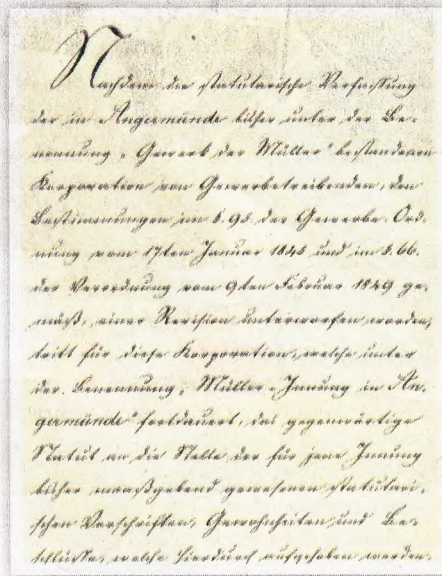 Nachdem die statutarische Verfassung
der in Angermünde bisher unter der Be-
nennung „Gewerk der Müller" bestandenen
Korporation von Gewerbetreibenden, den
Bestimmungen im §. 95. der Gewerbe-Ord-
nung vom 17ten Januar 1845 und im §. 66.
der Verordnung vom 9ten Februar 1849 ge-
mäß, einer Revision unterworfen worden,
tritt für diese Korporation, welche unter
der Benennung „Müller-Innung in An-
germünde" fortdauert, das gegenwärtige
Statut an die Stelle der für jene Innung
bisher maaßgebend gewesenen statutari-
schen Vorschriften, Gewohnheiten und Be-
schlüsse, welche hierdurch aufgehoben werden.